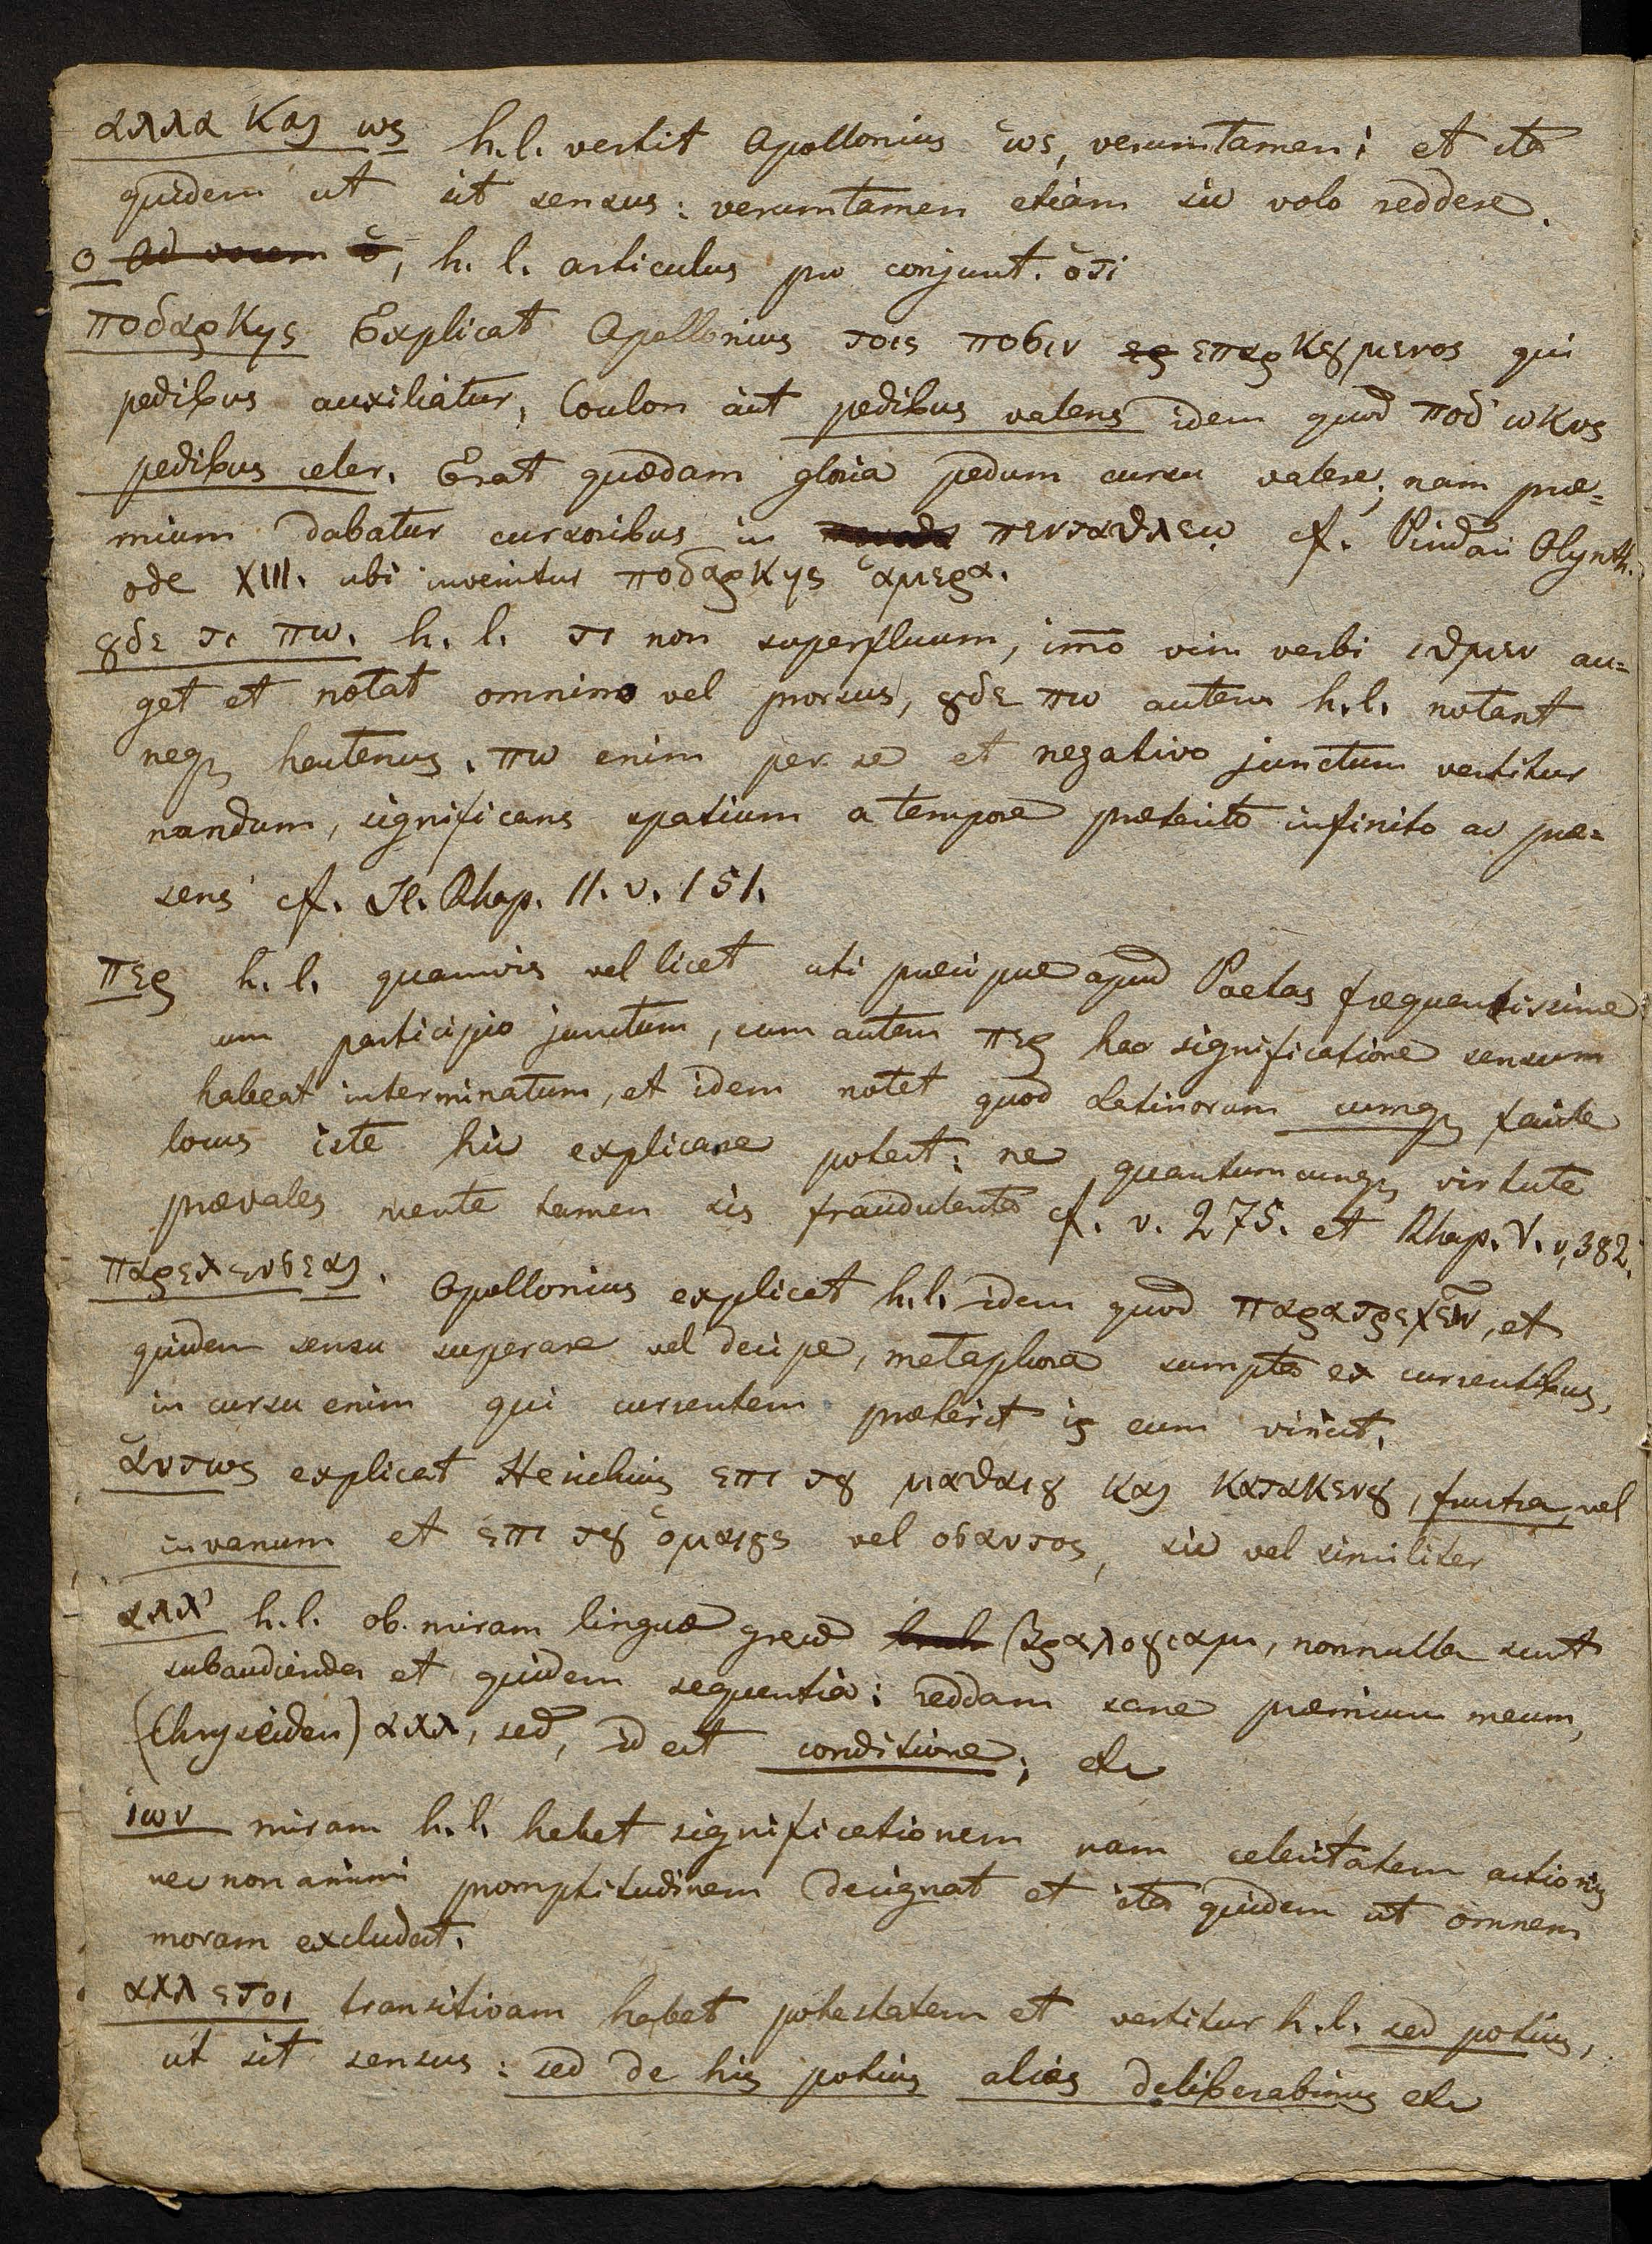 αλλα και ως h.l. vertit Apollonius ως, verumtamen; et ita
quidem ut sit sensus: verumtamen etiam sic volo reddere.
ο Ad vocem ὁ, h. l. articulus pro conjunt. ὁτι
ποδαρκης Explicat Apollonius τοις ποσιν επαρκȣμενος qui
pedibus auxiliatur, Coulon aut pedibus valens idem quod ποδ ωκυς
pedibus celer. Erat quædam gloria pedum cursu valere; nam præ=
mium dabatur cursoribus in πενταθλεω cf. Pindari Olynth.
ode XIII. ubi invenitur ποδαρκης ἁμερα.
ȣδε τι πω. h. l. τι non superfluum, imo vim verbi ιδμεν au=
get et notat omnino vel prorsus, ȣδε πω autem h.l. notant
neq hactenus. πω enim per se et negativo junctum vertitur
nondum, significans spatium a tempore præterito infinito ac præ=
sens cf. Il. Rhap. 11. v. 151.
περ h. l. quamvis vel licet uti præcipue apud Poetas frequentissime
cum participio junctum, cum autem περ hac significatione sensum
habeat interminatum, et idem notet quod Latinorum cumq facile
locus iste hic explicare potest: ne quantumcunq virtute
prævales mente tamen sis fraudulenta cf. v. 275. et Rhap. V. v, 382.
παρελευσεαι. Apollonius explicat h.l. idem quod παρατρεχειν, et
quidem sensu superare vel decipe, metaphora sumpta ex currentibus,
in cursu enim qui currentem præterit is eum vincit.
ἁυτως explicat Hesichius επι τȣ ματαιȣ και κατακενȣ, frustra, vel
in vanum et επι τȣ ὁμοιȣς vel οσαυτος, sic vel similiter
αλλ' h.l. ob miram linguæ grecæ βραλογιαμι, nonnulla sunt
subaudienda et quidem sequentia: reddam sane præmium meum,
(Chryseiden) αλλ, sed, id est conditione; etc
ἰων miram h.l. habet significationem nam celeritatem actionis
nec non animi promptitudinem designat et ita quidem ut omnem
moram excludat.
αλλ ετοι transitivam habet potestatem et vertitur h.l. sed potius,
ut sit sensus: sed de his potius alias deliberabimus etc